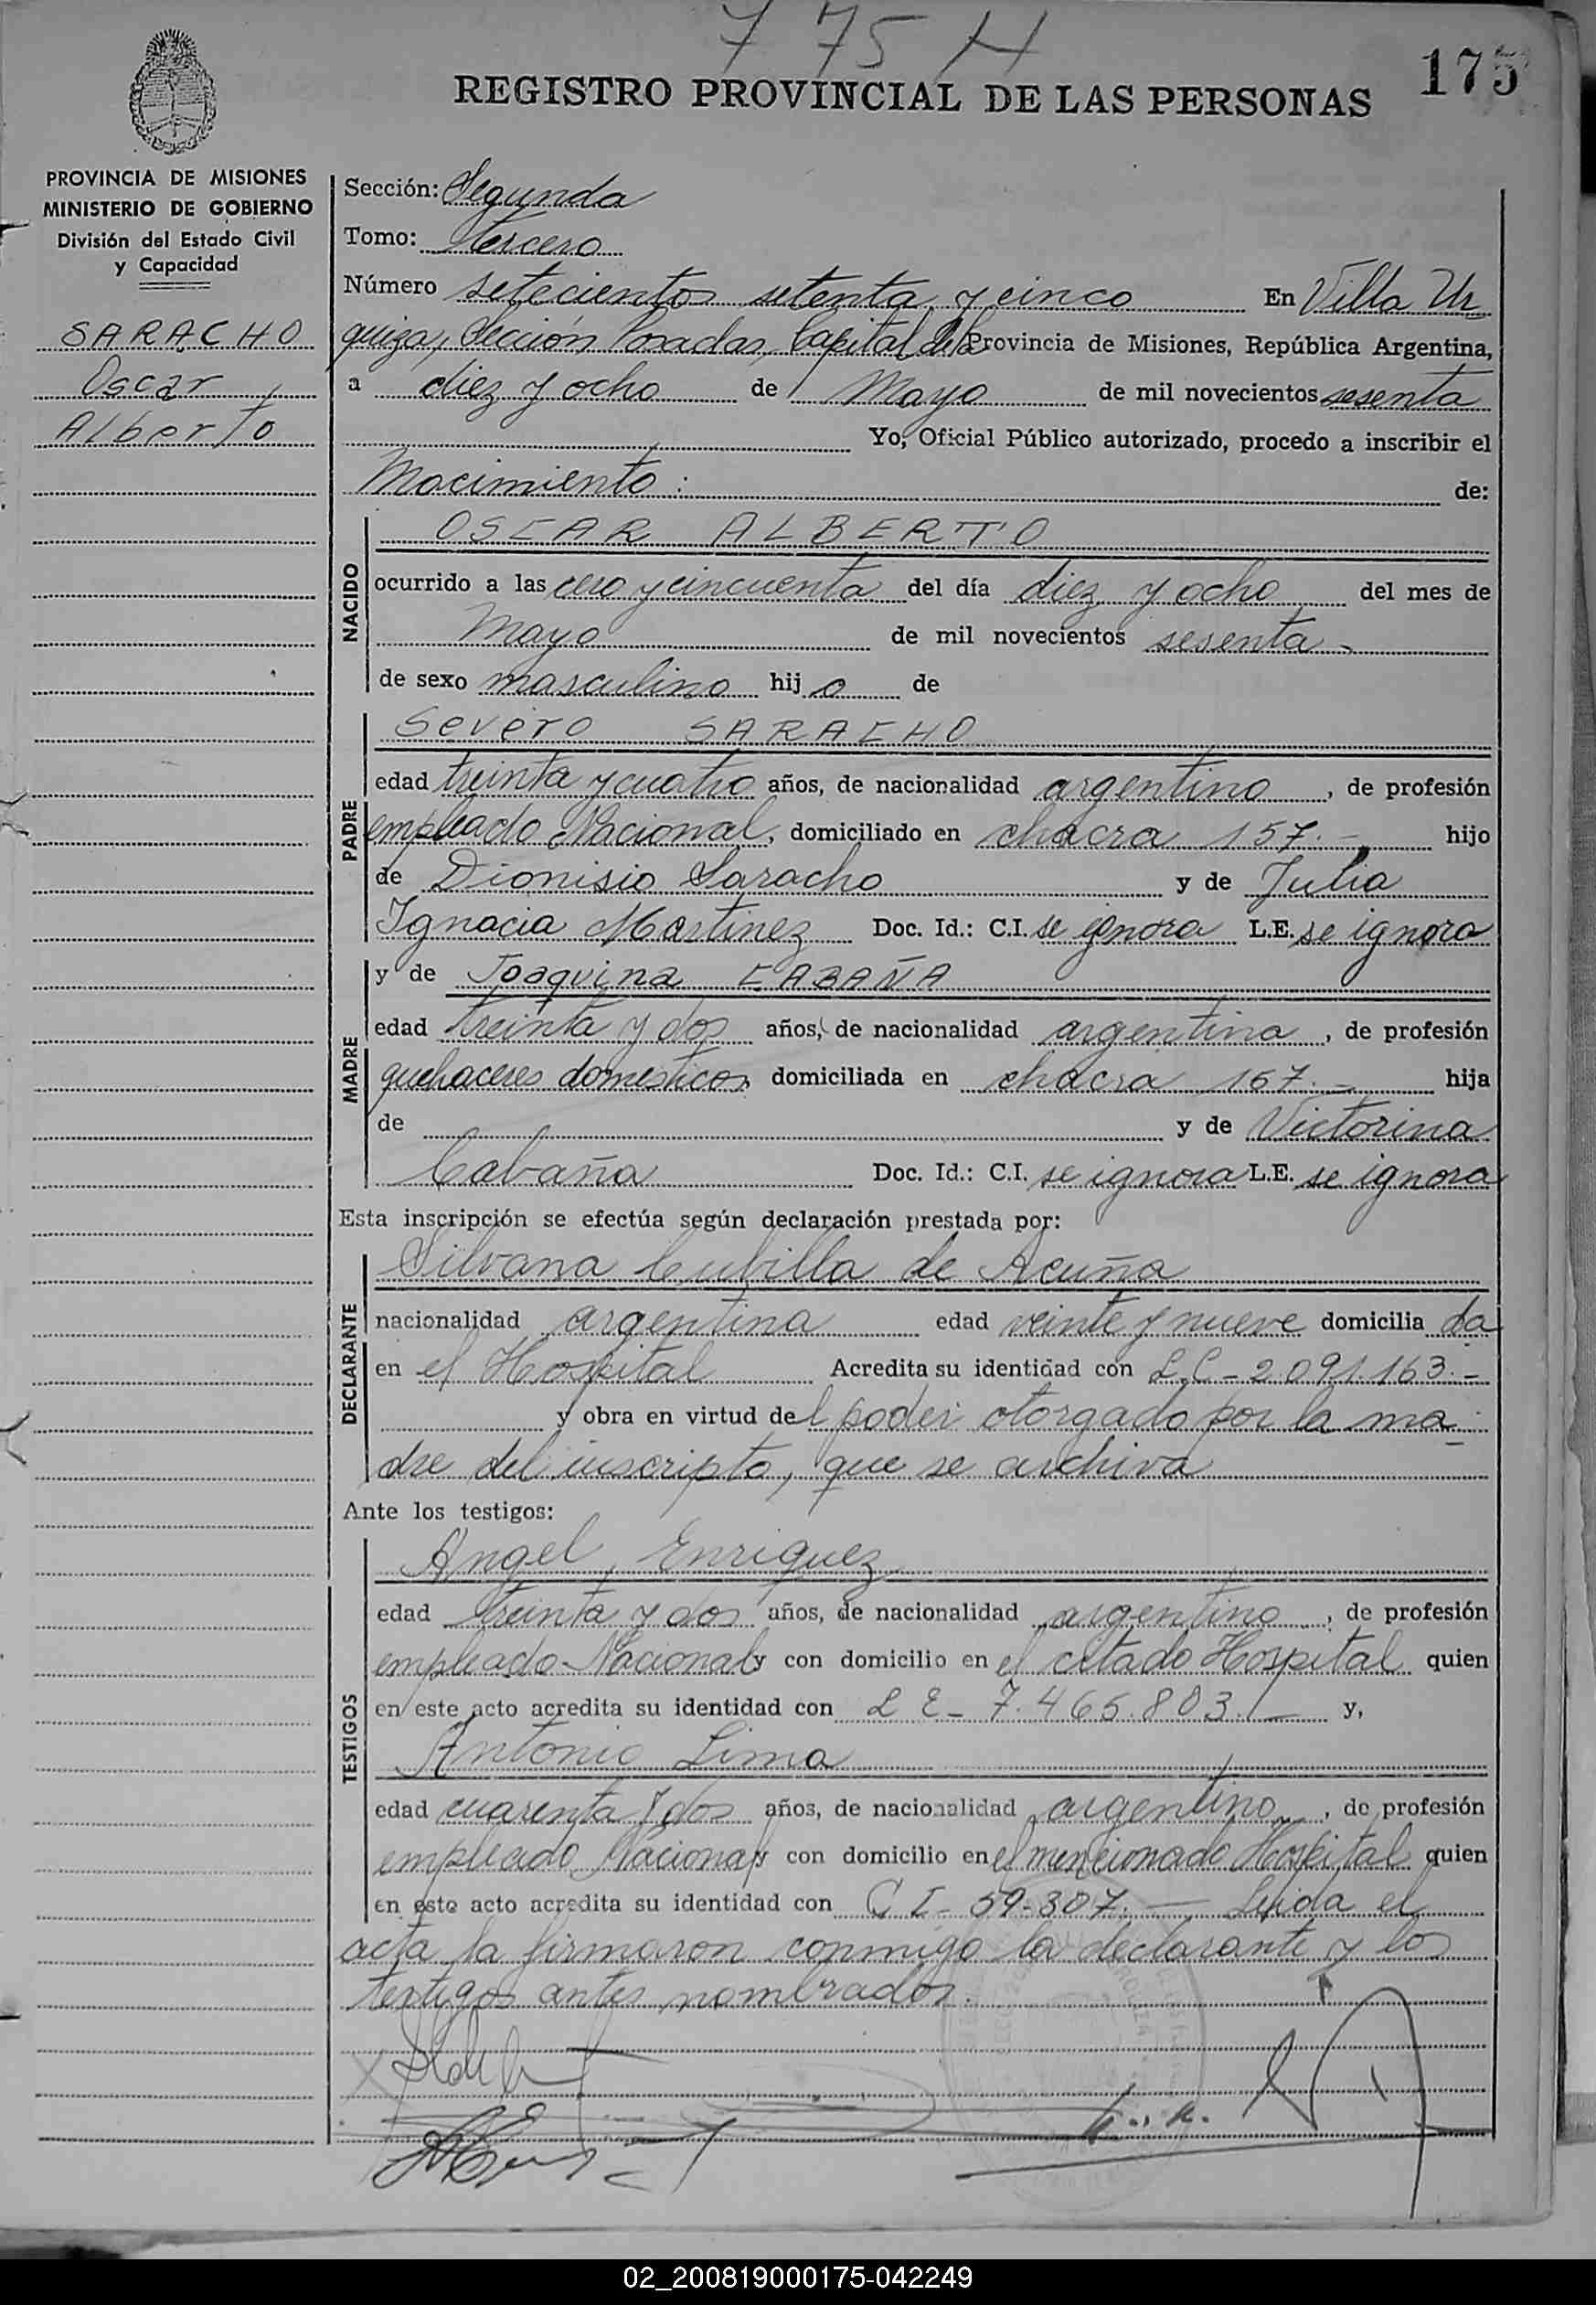 775 H
175
REGISTRO PROVINCIAL DE LAS PERSONAS
PROVINCIA DE MISIONES
MINISTERIO DE GOBIERNO
División del Estado Civil
y Capacidad
SARACHO
Oscar
Alberto
Sección: Segunda
Tomo: tercero
Número setecientos setenta y cinco En Villa Ur
quiza, Sección Posadas, Capital de la Provincia de Misiones, República Argentina,
a diez y ocho de Mayo de mil novecientos sesenta
Yo, Oficial Público autorizado, procedo a inscribir el
Nacimiento : de:
NACIDO
OSCAR ALBERTO
ocurrido a las cero y cincuenta del día diez y ocho del mes de
Mayo de mil novecientos sesenta -
de sexo masculino hij o de
PADRE
Severo SARACHO
edad treinta y cuatro años, de nacionalidad argentino, de profesión
empleado Nacional, domiciliado en chacra 157.- hijo
de Dionisio Saracho y de Julia
Ignacia Martinez Doc. Id.: C.I. se ignora L.E. se ignora
MADRE
y de Joaquina CABAÑA
edad treinta y dos años, de nacionalidad argentina, de profesión
quehaceres domesticos domiciliada en chacra 157.- hija
de y de Victorina
Cabaña Doc. Id.: C.I. se ignora L.E. se ignora
Esta inscripción se efectúa según declaración prestada por:
DECLARANTE
Silvana Cubilla de Acuña
nacionalidad argentina edad veinte y nueve domicilia da
en el Hospital Acredita su identidad con L.C - 2.091.163.-
y obra en virtud del poder otorgado por la ma
dre del inscripto, que se archiva
Ante los testigos:
TESTIGOS
Angel Enriquez
edad treinta y dos años, de nacionalidad argentino, de profesión
empleado Nacional y con domicilio en el citado Hospital quien
en este acto acredita su identidad con L E - 7.465.803.- y,
Antonio Lima
edad cuarenta y dos años, de nacionalidad argentino, de profesión
empleado Nacional y con domicilio en el mencionado Hospital quien
en este acto acredita su identidad con C I - 59-307.- Leida el
acta la firmaron conmigo la declarante y los
testigos antes nombrados.
02_200819000175-042249